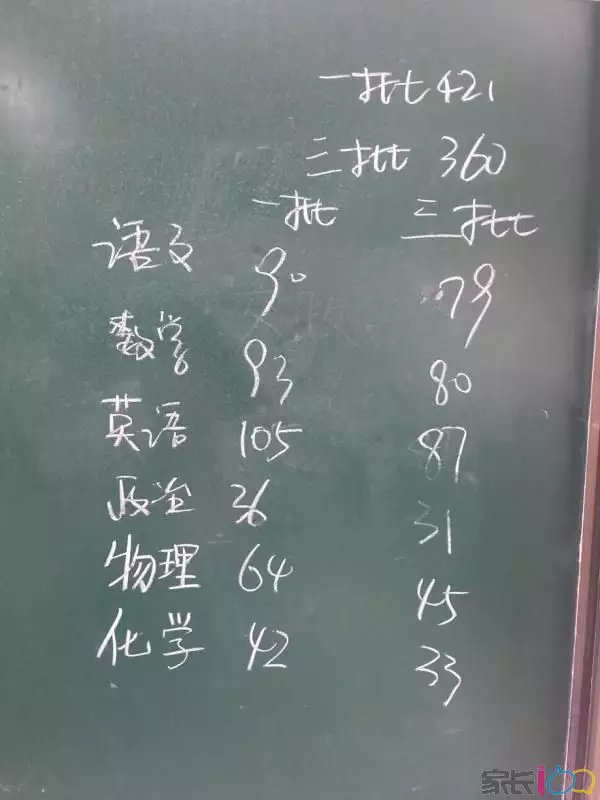 一批421
三批 360
一批 三批
语文 90 79
数学 93 80
英语 105 87
政治 36 31
物理 64 45
化学 42 33
家长100